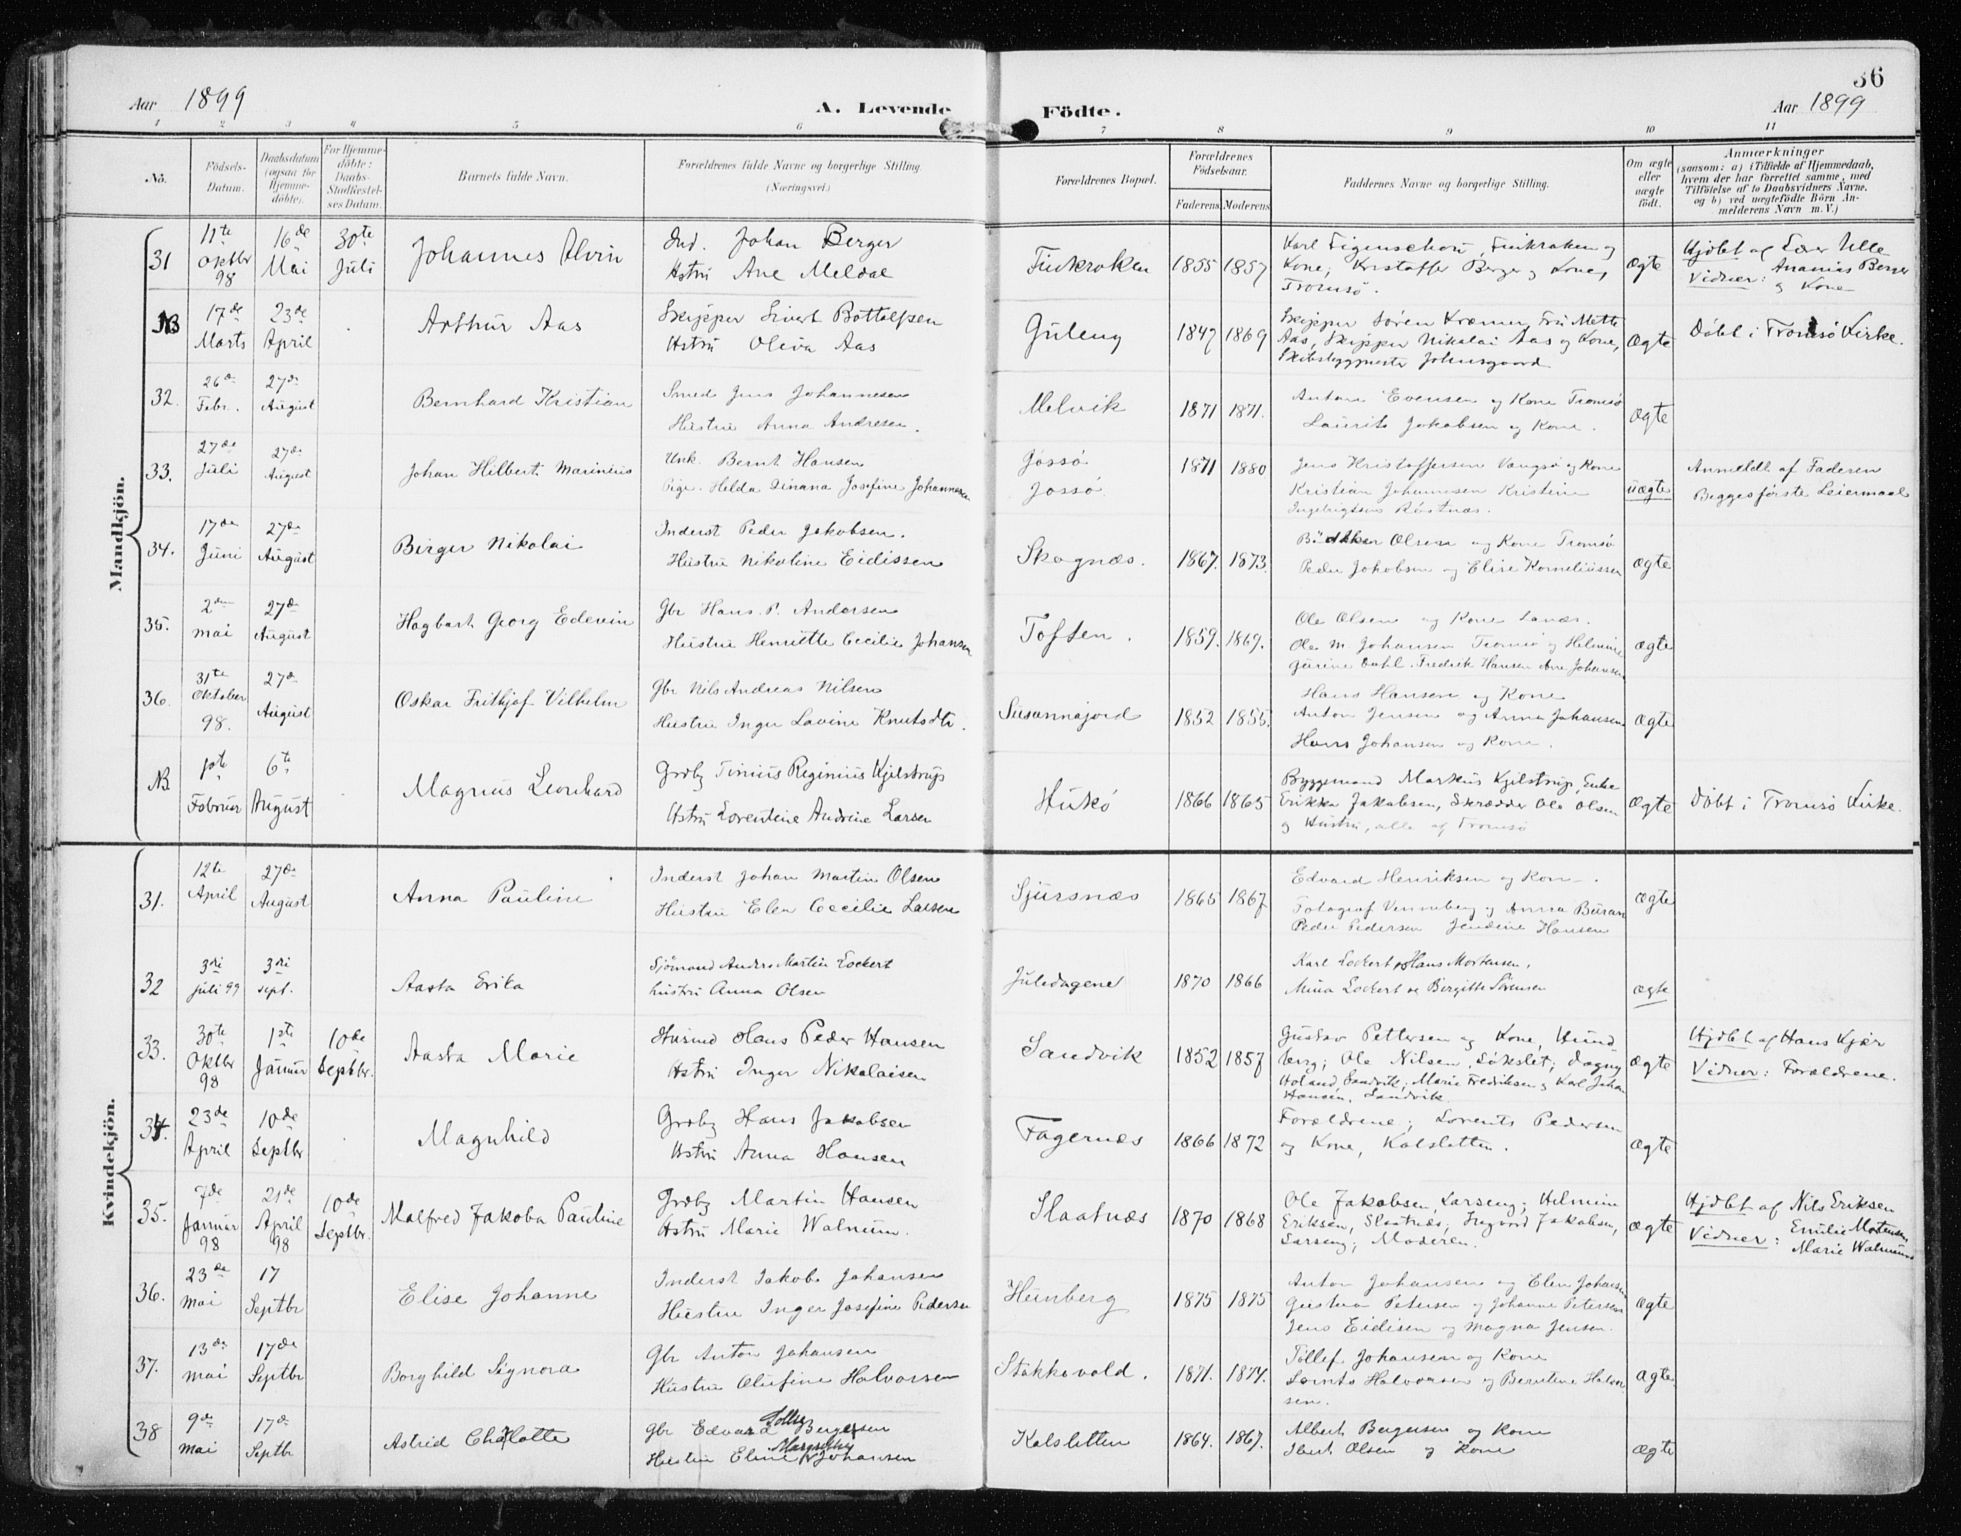 36
Aar 1899
A. Levende
Födte.
Aar 1899
1 2 3 4 5 6 7 8 9 10 11
No.
Födsels-
Datum.
Daabsdatum
(ogsaa for
Hjemme-
döbte).
For Hjemme-
döbte:
Daabs-
Stadfæstel-
ses Datum.
Barnets fulde Navn.
Forældrenes fulde Navne og borgerlige Stilling.
(Næringsvei.)
Forældrenes Bopæl.
Forældrenes
Födselsaar.
Faderens Moderens
Faddernes Navne og borgerlige Stilling.
Om ægte
eller
uægte
födt.
Anmærkninger
(saasom: a) i Tilfælde af Hjemmedaab,
hvem der har forrettet samme, med
Tilföielse af to Daabsvidners Navne.
og b) ved uægtefödte Börn An-
melderens Navn m. V.)
Mandkjön.
31
11te
Oktbr
98
16de
Mai
30te
Juli
Johannes Alvin
Ind. Johan Berger
Hstru Ane Meldal
Finkroken
1855 1857
Karl Figenschou, Finkroken og
Kone, Kristoffer Berger og Kone,
Tromsø.
Ægte
Hjdbt af Lærer Ulle
Vidner: Ananias Berger
og Kone
NB
17de
Marts
23de
April
Arthur Aas
Skipper Sivert Bottolfsen
Hstru Oliva Aas
Guleng
1847 1869
Skipper Sören Kræmer, Fru Mette
Aas, Skipper Nikolai Aas og Kone,
Skibsbyggmester Johnsgaard
Ægte
Döbt i Tromsö Kirke.
32.
26de
Febr.
27de
August
Bernhard Kristian
Smed Jens Johannesen
Hustru Anna Andresen.
Melvik
1871 1871.
Anton Evensen og Kone Tromsø
Laurits Jakobsen og Kone.
Ægte
33.
27de
Juli
27de
August
Johan Hilbert Marinius
Unk. Bernt Hansen
Pige. Helda Dinana Josefine Johannesen
Jøssø
Jøssø
1871 1880
Jens Kristoffersen Vangsø og Kone
Kristian Johannesen Kristine
Ingebrigtsen Røstnæs.
uægte
Anmeldt af Faderen
Begges første Leiermaal
34.
17de
Juni
27de
August
Birger Nikolai
Inderst Peder Jakobsen.
Hustru Nikoline Eidissen
Skognæs.
1867. 1873.
Bödkker Olsen og Kone Tromsø
Peder Jakobsen og Elise Korneliussen
Ægte
35.
2den
mai
27de
August
Hagbart Georg Edevin
Gbr Hans P. Andersen
Hustru Henriette Cecilie Johansen
Toften.
1859. 1869.
Ole Olsen og Kone
Ole M. Johansen Tromsø og Helmine
Gurine Dahl. Fredrik Hansen Ane Johansen
Ægte
36.
31te
Oktober
98.
27de
August
Oskar Frithjof Vilhelm
Gbr Nils Andreas Nilsen
Hustru Inger Lavine Knutsdtr.
Susannajord
1852 1855.
Hans Hansen og Kone
Anton Jensen og Anna Johansen
Hans Johansen og Kone.
Ægte
NB
1ste
Februar
6te
August
Magnus Leonhard
Grdbg Tinius Reginius Kjelstrup
Hstru Lorentine Andrine Larsen
Hukö
1866 1865
Byggemand Markus Kjelstrup, Enke
Erikka Jakobsen, Skrædder Ole Olsen
og Hustru, alle af Tromsö
Ægte
Döbt i Tromsö Kirke.
Kvindekjön.
31.
12te
April
27de
August
Anna Pauline
Inderst Johan Martin Olsen
Hustru Elen Cecilie Larsen
Sjursnæs
1865 1867
Edvard Henriksen og Kone.
Fotograf Venneberg og Anna Buran
Peder Pedersen Jendine Hansen
Ægte
32
3die
juli 99
3die
sept.
Aasta Erika
Sjömand Anders Martin Lockert
hustru Anna Olsen
Juledagene
1870 1866
Karl Lockert, Hans Mortensen,
Mina Lockert og Birgitte Sörensen
ægte
33.
30te
Oktbr
98
1ste
Januar
10de
Septbr.
Aasta Marie
Husmd Hans Peder Hansen
Hstru Inger Nikolaisen
Sandvik
1852 1857
Gustav Pettersen og Kone, Hund-
berg; Ole Nilsen, Løkslet; Dagny
Holand, Sandvik; Marie Fredriksen og Karl Johan
Hansen, Sandvik.
Ægte
Hjdbt af Hans Kjær
Vidner: Forældrene.
34.
23de
April
10de
Septbr
Magnhild
Grdbg Hans Jakobsen
Hstru Anna Hansen
Fagernæs
1866 1872
Forældrene; Lorents Pedersen
og Kone, Kalsletten.
Ægte
35.
7de
Januar
98
21de
April
98
10de
Septbr.
Malfred Jakoba Pauline
Grdbg Martin Hansen
Hstru Marie Walnum.
Slaatnæs
1870 1868
Ole Jakobsen, Larseng; Helmine
Eriksen, Slaatnæs; Ingvard Jakobsen,
Larseng; Moderen.
Ægte
Hjdbt af Nils Eriksen
Vidner: Emilie Mortensen
Marie Walnum
36.
23de
Mai
17
Septbr
Elise Johanne
Inderst Jakob Johansen
Hustru Inger Josefine Pedersen
Hünberg
1875 1875
Anton Johansen og Elen Johansen
Gustava Petersen og Johanne Petersen
Jens Eidisen og Magna Jensen.
Ægte
37.
13de
mai
17de
Septbr
Borghild Signora
Gbr Anton Johansen
Hustru Olufine Halvorsen
Stakkevold.
1871. 1874.
Tollef Johansen og Kone
Lornts Halvorsen og Berntine Halvor
sen.
Ægte.
38
9de
mai
17de
Septbr
Astrid Charlotte
Gbr Edvard Solberg Bergersen
Hustru Eline Margrethe Johansen
Kalsletten
1864. 1867.
Albert Bergersen og Kone
Ibert Olsen og Kone
Ægte